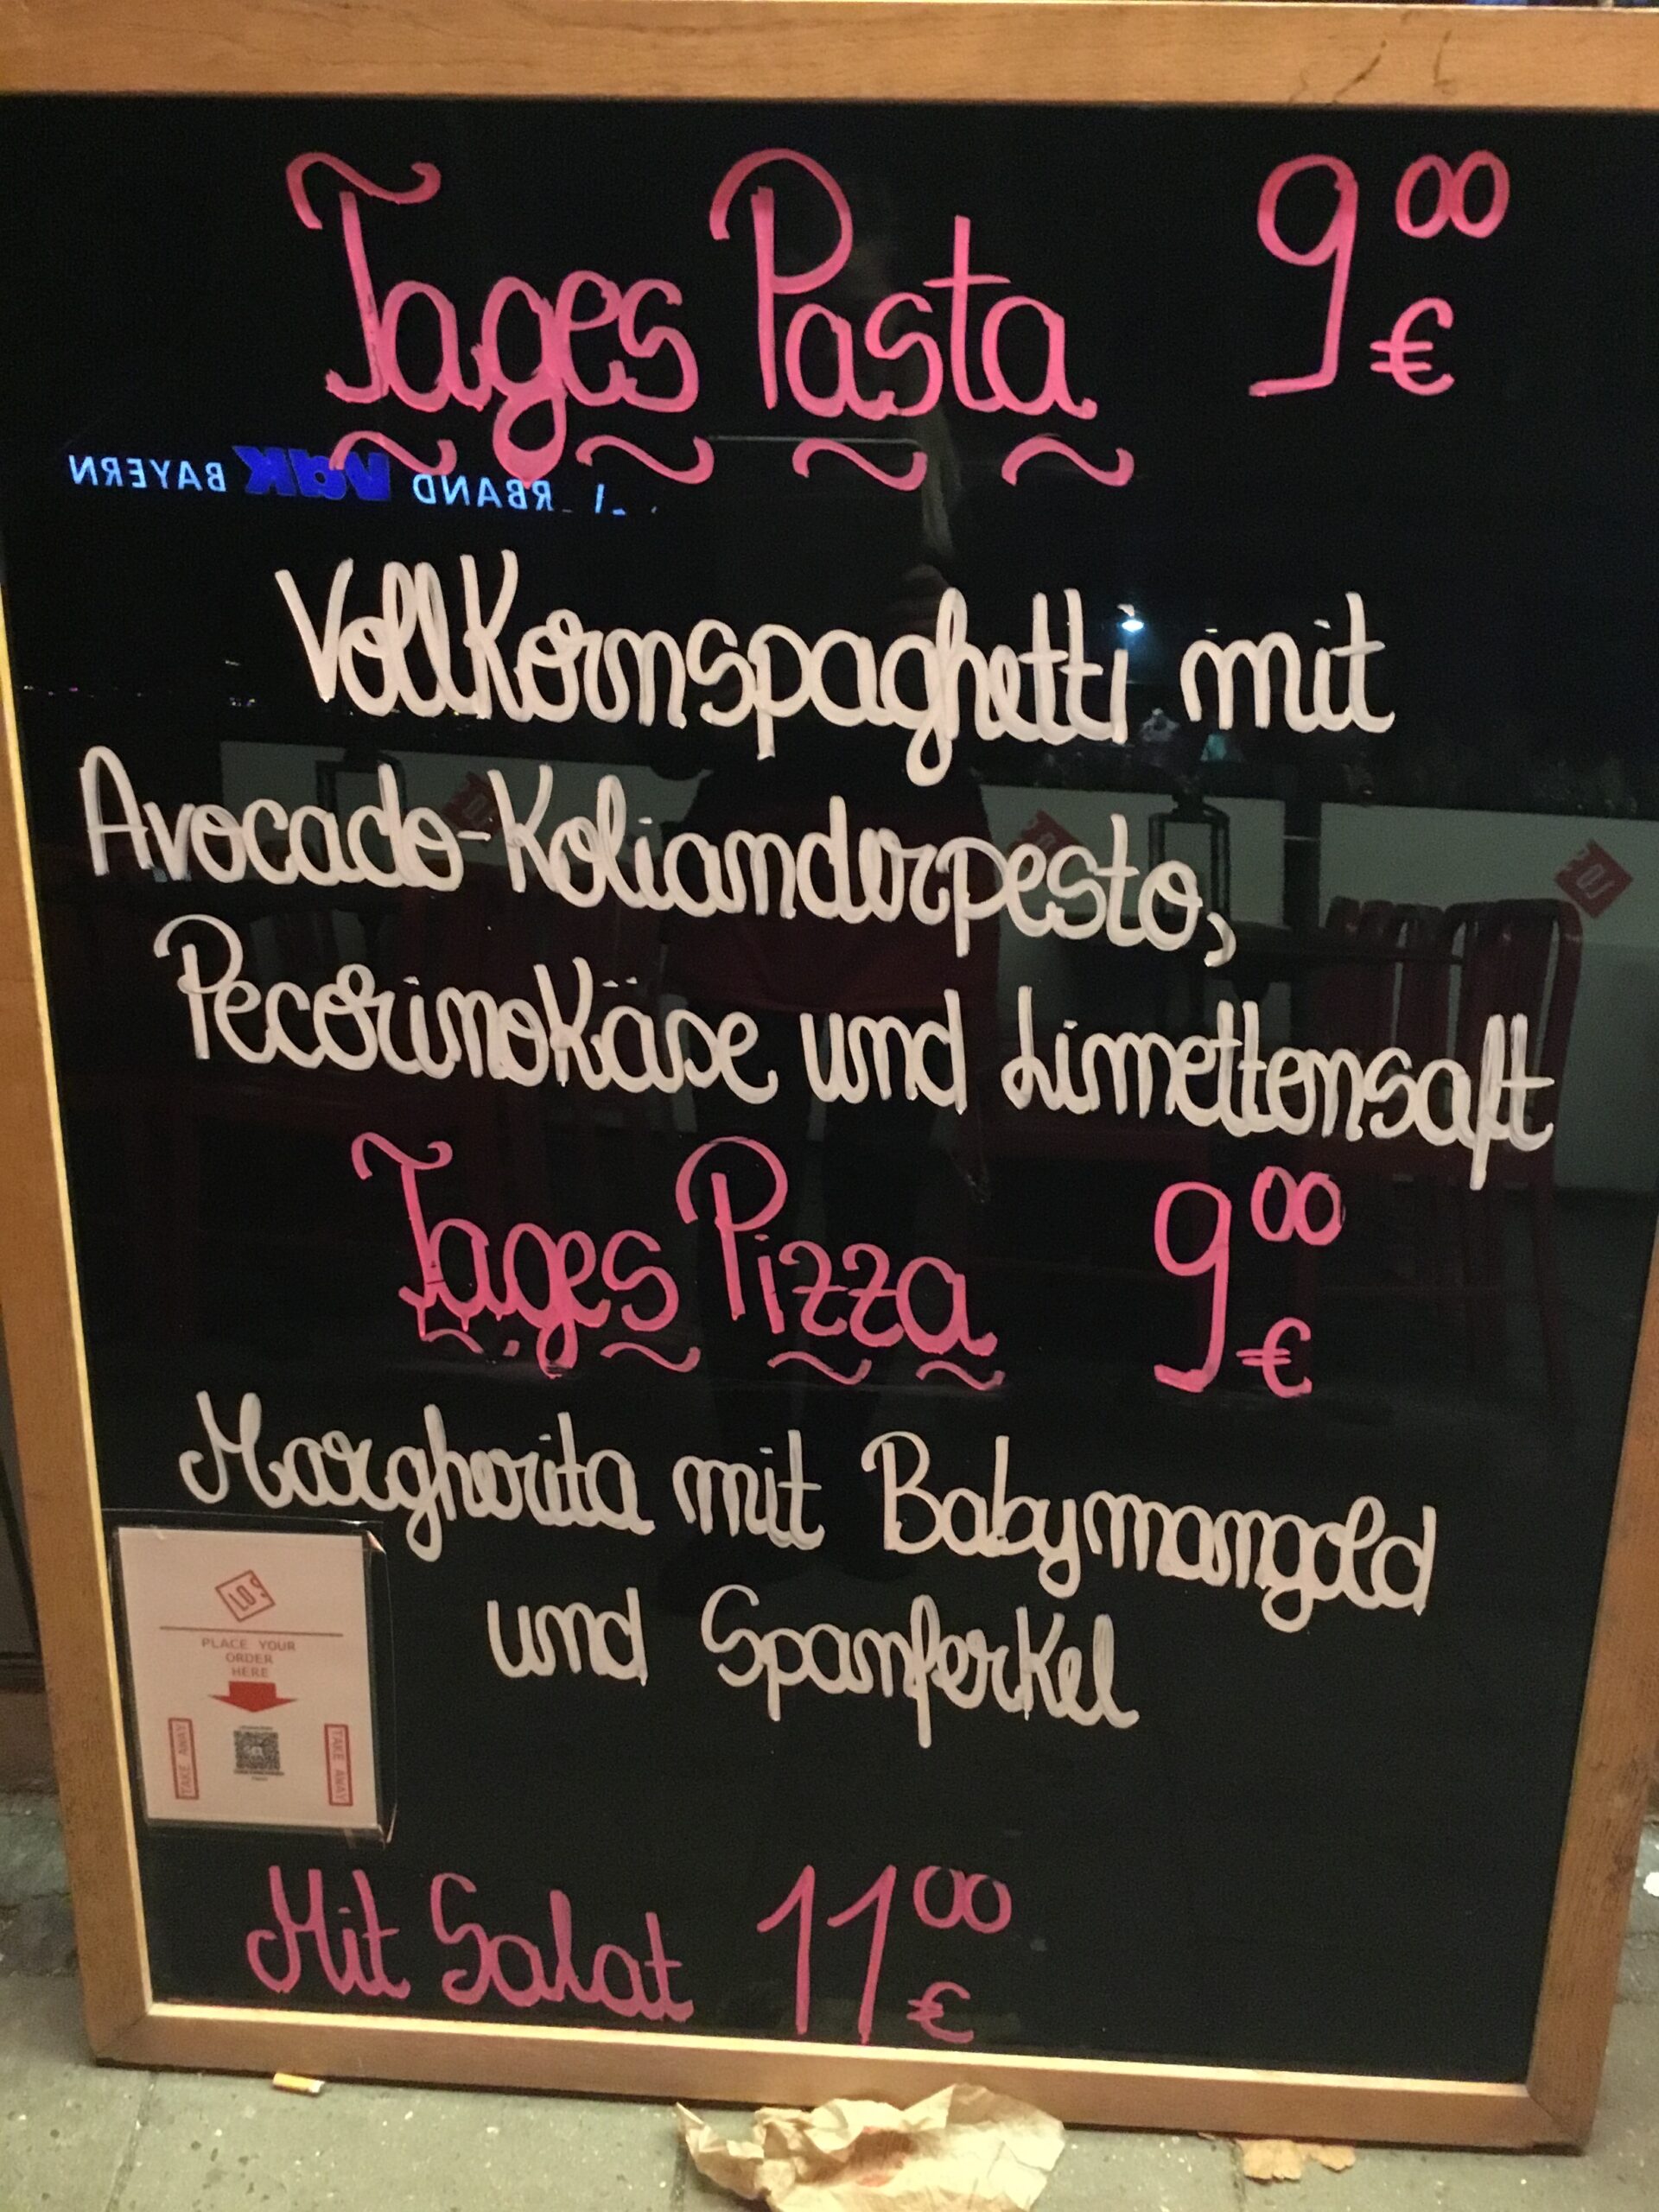 Tages Pasta 9⁰⁰ €
BAYERN
VdK
RBAND
Vollkornspaghetti mit
Avocado-Kolianderpesto,
Pecorinokäse und Limettensaft
Tages Pizza 9⁰⁰ €
Margherita mit Babymangold
und Spanferkel
LOS
PLACE YOUR
ORDER
HERE
TAKE AWAY
TAKE AWAY
Mit Salat 11⁰⁰ €